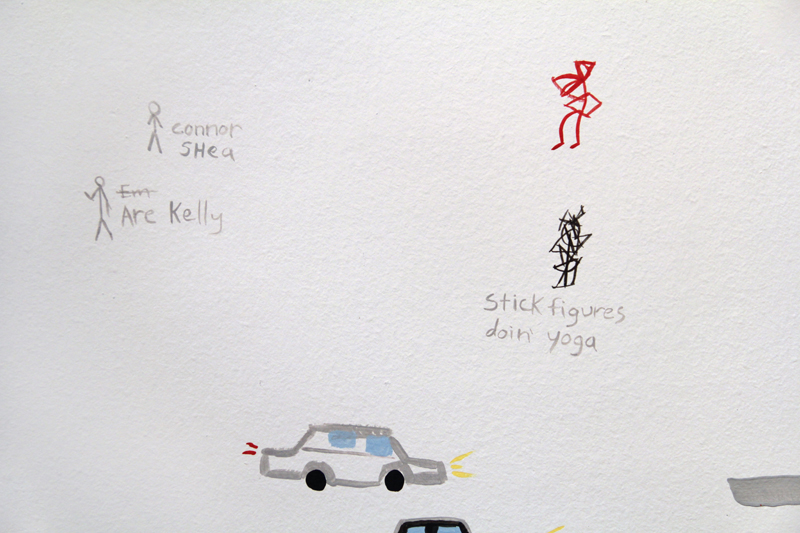 connor
SHea
Em
Are Kelly
Stick figures
doin' yoga